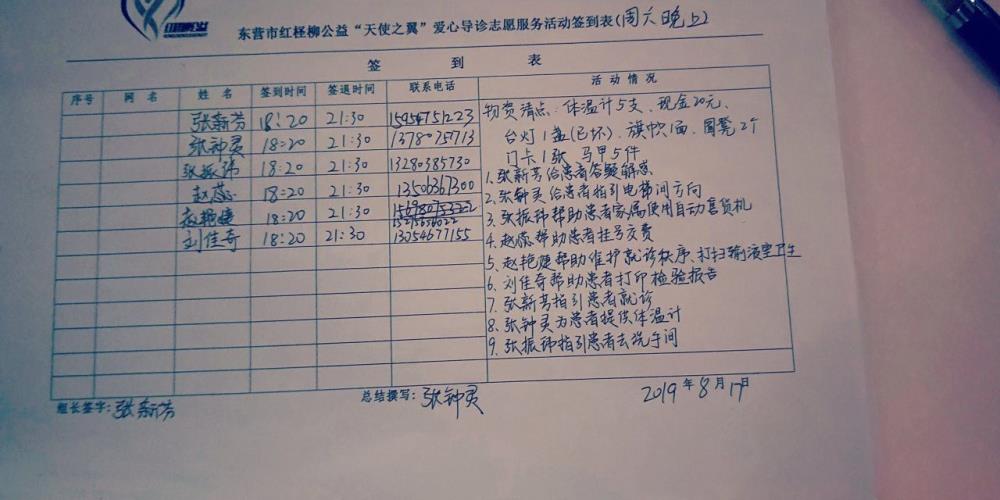 东营市红柽柳公益“天使之翼”爱心导诊志愿服务活动签到表(周六晚上)
签到表
序号 网名 姓名 签到时间 签退时间 联系电话 活动情况
张新芳 18:20 21:30 15954751223
张钟灵 18:20 21:30 13780757713
张振玮 18:20 21:30 13280385730
赵蕊 18:20 21:30 13506367300
赵艳婕 18:20 21:30
刘佳奇 18:20 21:30 13054677155
物资清点:体温计5支、现金20元、
台灯1盏(已坏)、旗帜1面、圆凳2个
门卡1张 马甲5件
1.张新芳给患者答疑解惑
2.张钟灵给患者指引电梯间方向
3.张振玮帮助患者家属使用自动售货机
4.赵蕊帮助患者挂号交费
5.赵艳婕帮助维护就诊秩序、打扫输液室卫生
6.刘佳奇帮助患者打印检验报告
7.张新芳指引患者就诊
8.张钟灵为患者提供体温计
9.张振玮指引患者去洗手间
组长签字:张新芳
总结撰写:张钟灵
2019年8月17日